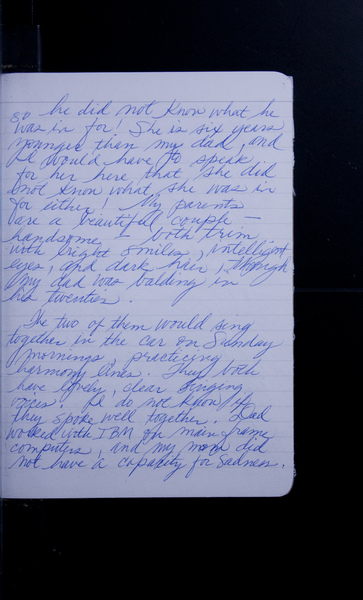 so he did not know what he
was in for! She is six years
younger than my dad, and
I would have to speak
for her here that she did
not know what she was in
for either! My parents
are a beautiful couple —
handsome — both trim,
with bright smiles, intelligent
eyes, and dark hair, though
my dad was balding in
his twenties.
The two of them would sing
together in the car on Sunday
mornings, practicing
harmony lines. They both
have lovely, clear singing
voices. I do not know if
they spoke well together. Dad
worked with IBM on mainframe
computers, and my mom did
not have a capacity for sadness.